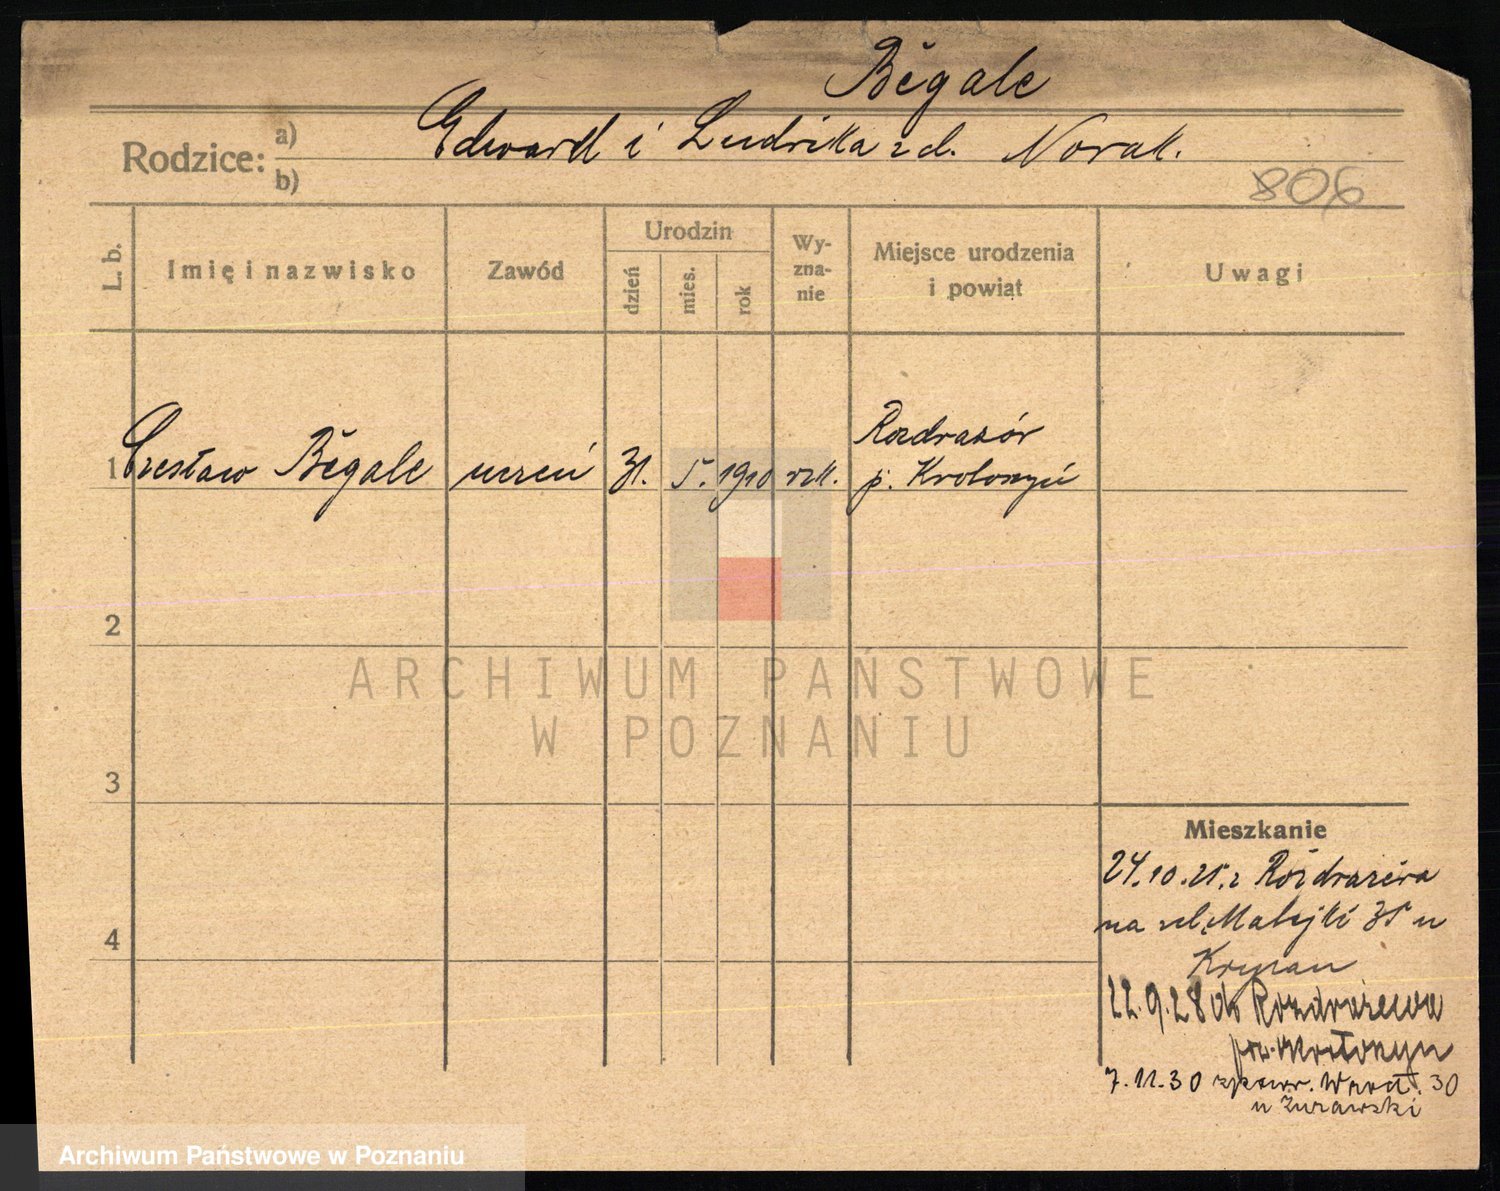 Bĕgale
Rodzice: a) b)
Edward i Ludwika z d. Nowak.
806
L. b.
Imię i nazwisko
Zawód
Urodzin
dzień
mies.
rok
Wy-
zna-
nie
Miejsce urodzenia
i powiat
Uwagi
1 Czesław Bĕgale uczeń 31. 5. 1910 rzk. Rozdrazów
p. Krotoszyń
2
3
4
Mieszkanie
24.10.25. z Rozdrażewa
na ul. Matejki 35 u
22.9.28 do Rozdrażewa
pow. Krotoszyn
7.11.30 zpowr. 30
u Żurawski
ARCHIWUM PAŃSTWOWE
W POZNANIU
Archiwum Państwowe w Poznaniu